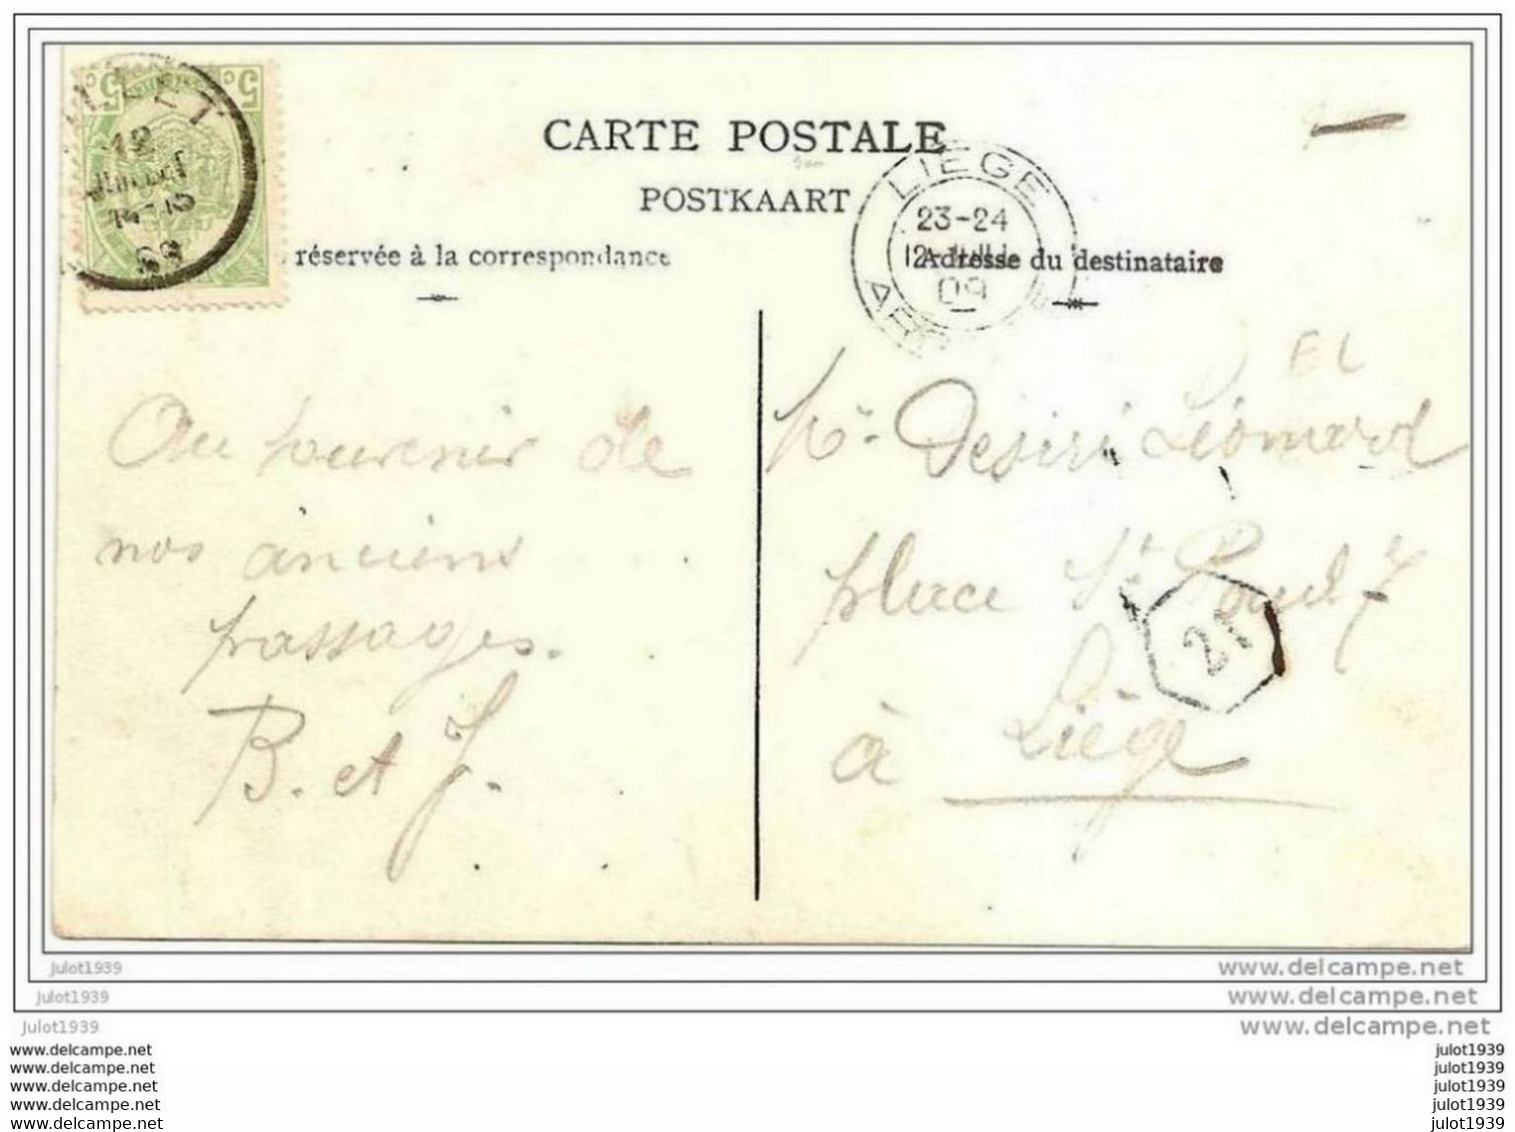 CARTE POSTALE
POSTKAART
réservée à la correspondance
Adresse du destinataire
5 c
c 5
12
JUILLET
LIEGE
23-24
12 JUIL
09
Au souvenir de
nos anciens
passages.
B. et J.
Mr. Desiré Léonard
place St Paul 7
à Liège
EL
julot1939
julot1939
julot1939
www.delcampe.net
www.delcampe.net
www.delcampe.net
www.delcampe.net
www.delcampe.net
www.delcampe.net
www.delcampe.net
www.delcampe.net
julot1939
julot1939
julot1939
julot1939
julot1939